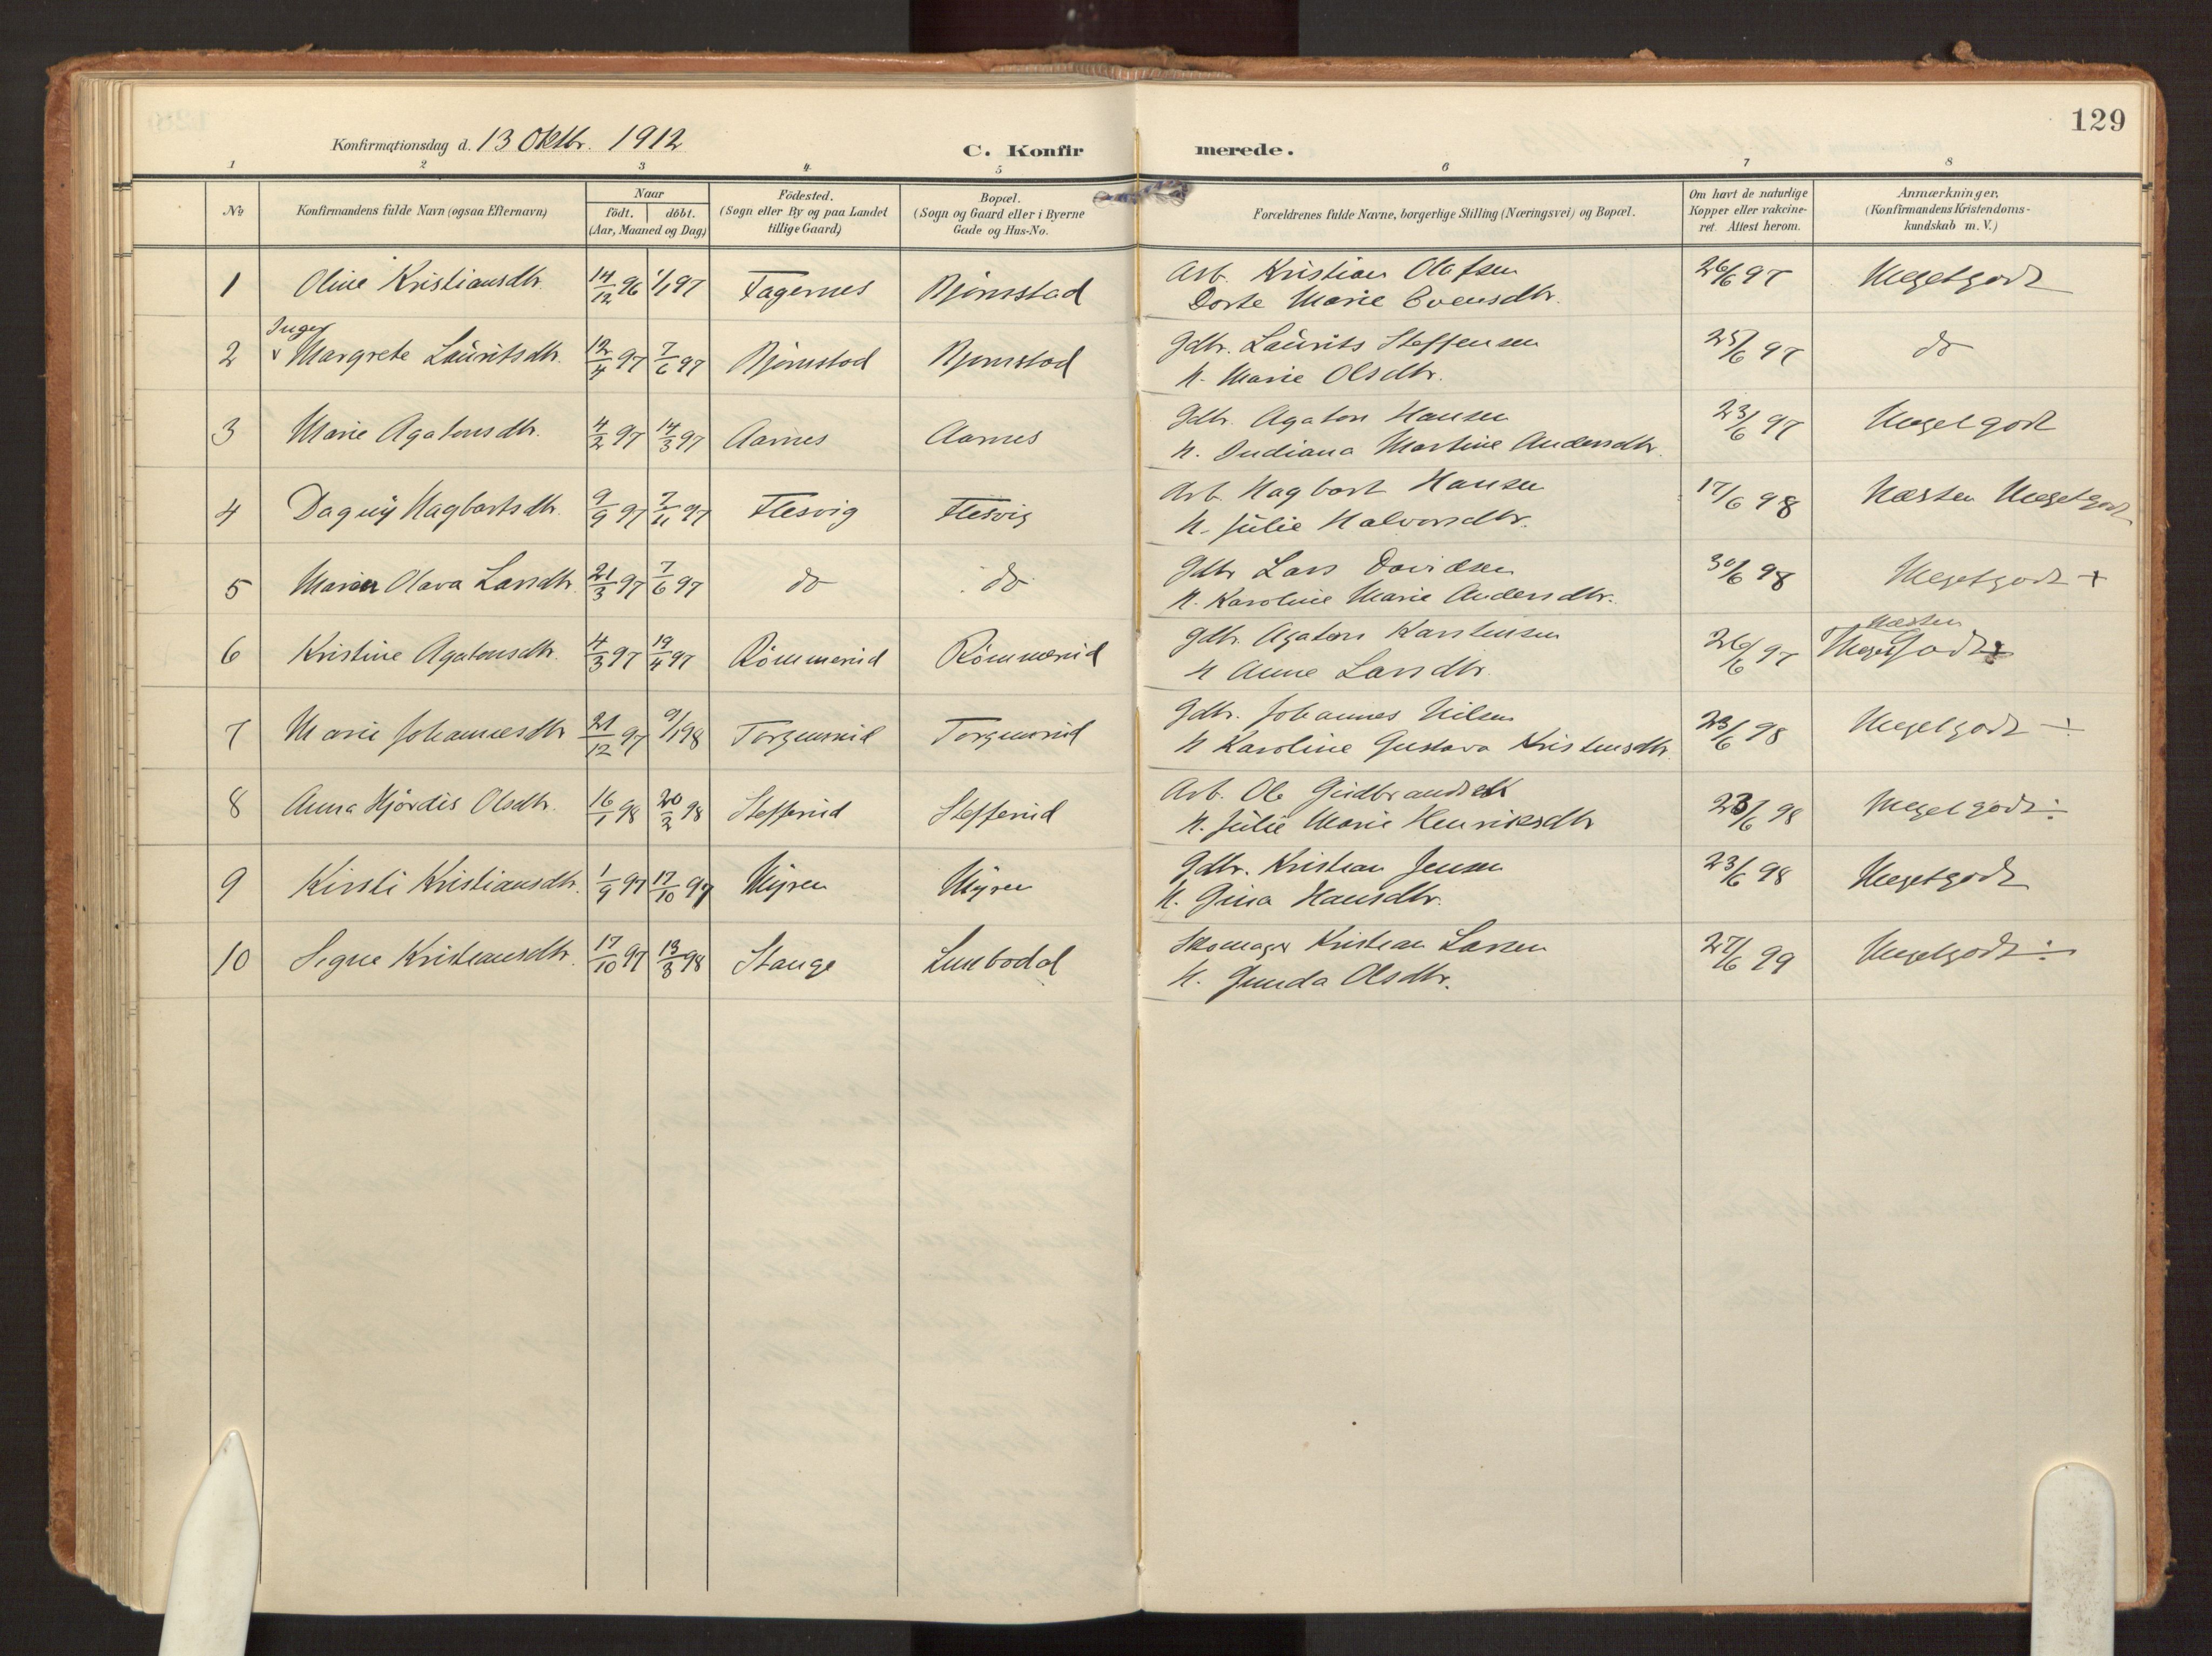 129
Konfirmationsdag d. 13 Oktbr. 1912
C. Konfirmerede.
1 2 3 4 5 6 7 8
No Konfirmandens fulde Navn (ogsaa Efternavn) Naar födt. döbt. (Aar, Maaned og Dag) Födested. (Sogn eller By og paa Landet tillige Gaard) Bopæl. (Sogn og Gaard eller i Byerne Gade og Hus-No. Forældrenes fulde Navne, borgerlige Stilling (Næringsvei) og Bopæl. Om havt de naturlige Kopper eller vakcineret. Attest herom. Anmærkninger, (Konfirmandens Kristendomskundskab m. V.)
1 Oline Kristiansdtr. 14/12 96 1/1 97 Fagernes Bjørnstad Arb. Kristian Olafsen 26/6 97 Megetgodt
Dorte Marie Evensdtr.
2 Inger Margrete Lauritsdtr. 12/4 97 7/6 97 Bjørnstad Bjørnstad Gdbr. Laurits Steffensen 25/6 97 do
H. Marie Olsdtr.
3 Marie Agatonsdtr. 4/2 97 14/3 97 Aarnes Aarnes Gdbr. Agaton Hansen 23/6 97 Megetgodt
H. Indiana Martine Andersdtr.
4 Dagny Hagbartsdtr. 9/9 97 7/11 97 Flesvig Flesvig Arb. Hagbart Hansen 17/6 98 Næsten Megetgodt
H. Julie Halvorsdtr.
5 Maren Olava Larsdtr. 21/3 97 7/6 97 do do Gdbr Lars Davidsen 30/6 98 Megetgodt +
H. Karoline Marie Andersdtr.
6 Kristine Agatonsdtr. 4/3 97 19/4 97 Rømmerud Rømmerud Gdbr. Agaton Karstensen 26/6 97 Næsten Megetgodt
H Anne Larsdtr.
7 Marie Johannesdtr 21/12 97 9/1 98 Torgunrud Torgunrud Gdbr. Johannes Nilsen 23/6 98 Megetgodt ÷
H Karoline Gustava Kristensdtr.
8 Anna Hjørdis Olsdtr. 16/1 98 20/2 98 Stefferud Stefferud Arb. Ole Gudbrandsen 23/6 98 Megetgodt ÷
H. Julie Marie Henriksdtr
9 Kirsti Kristiansdtr. 1/9 97 17/10 97 Myren Myren Gdbr. Kristian Jensen 23/6 98 Megetgodt
H. Gina Hansdtr.
10 Signe Kristiansdtr. 17/10 97 13/3 98 Stange Skomager Kristian Larsen 27/6 99 Megetgodt ÷
H. Gunda Olsdtr.